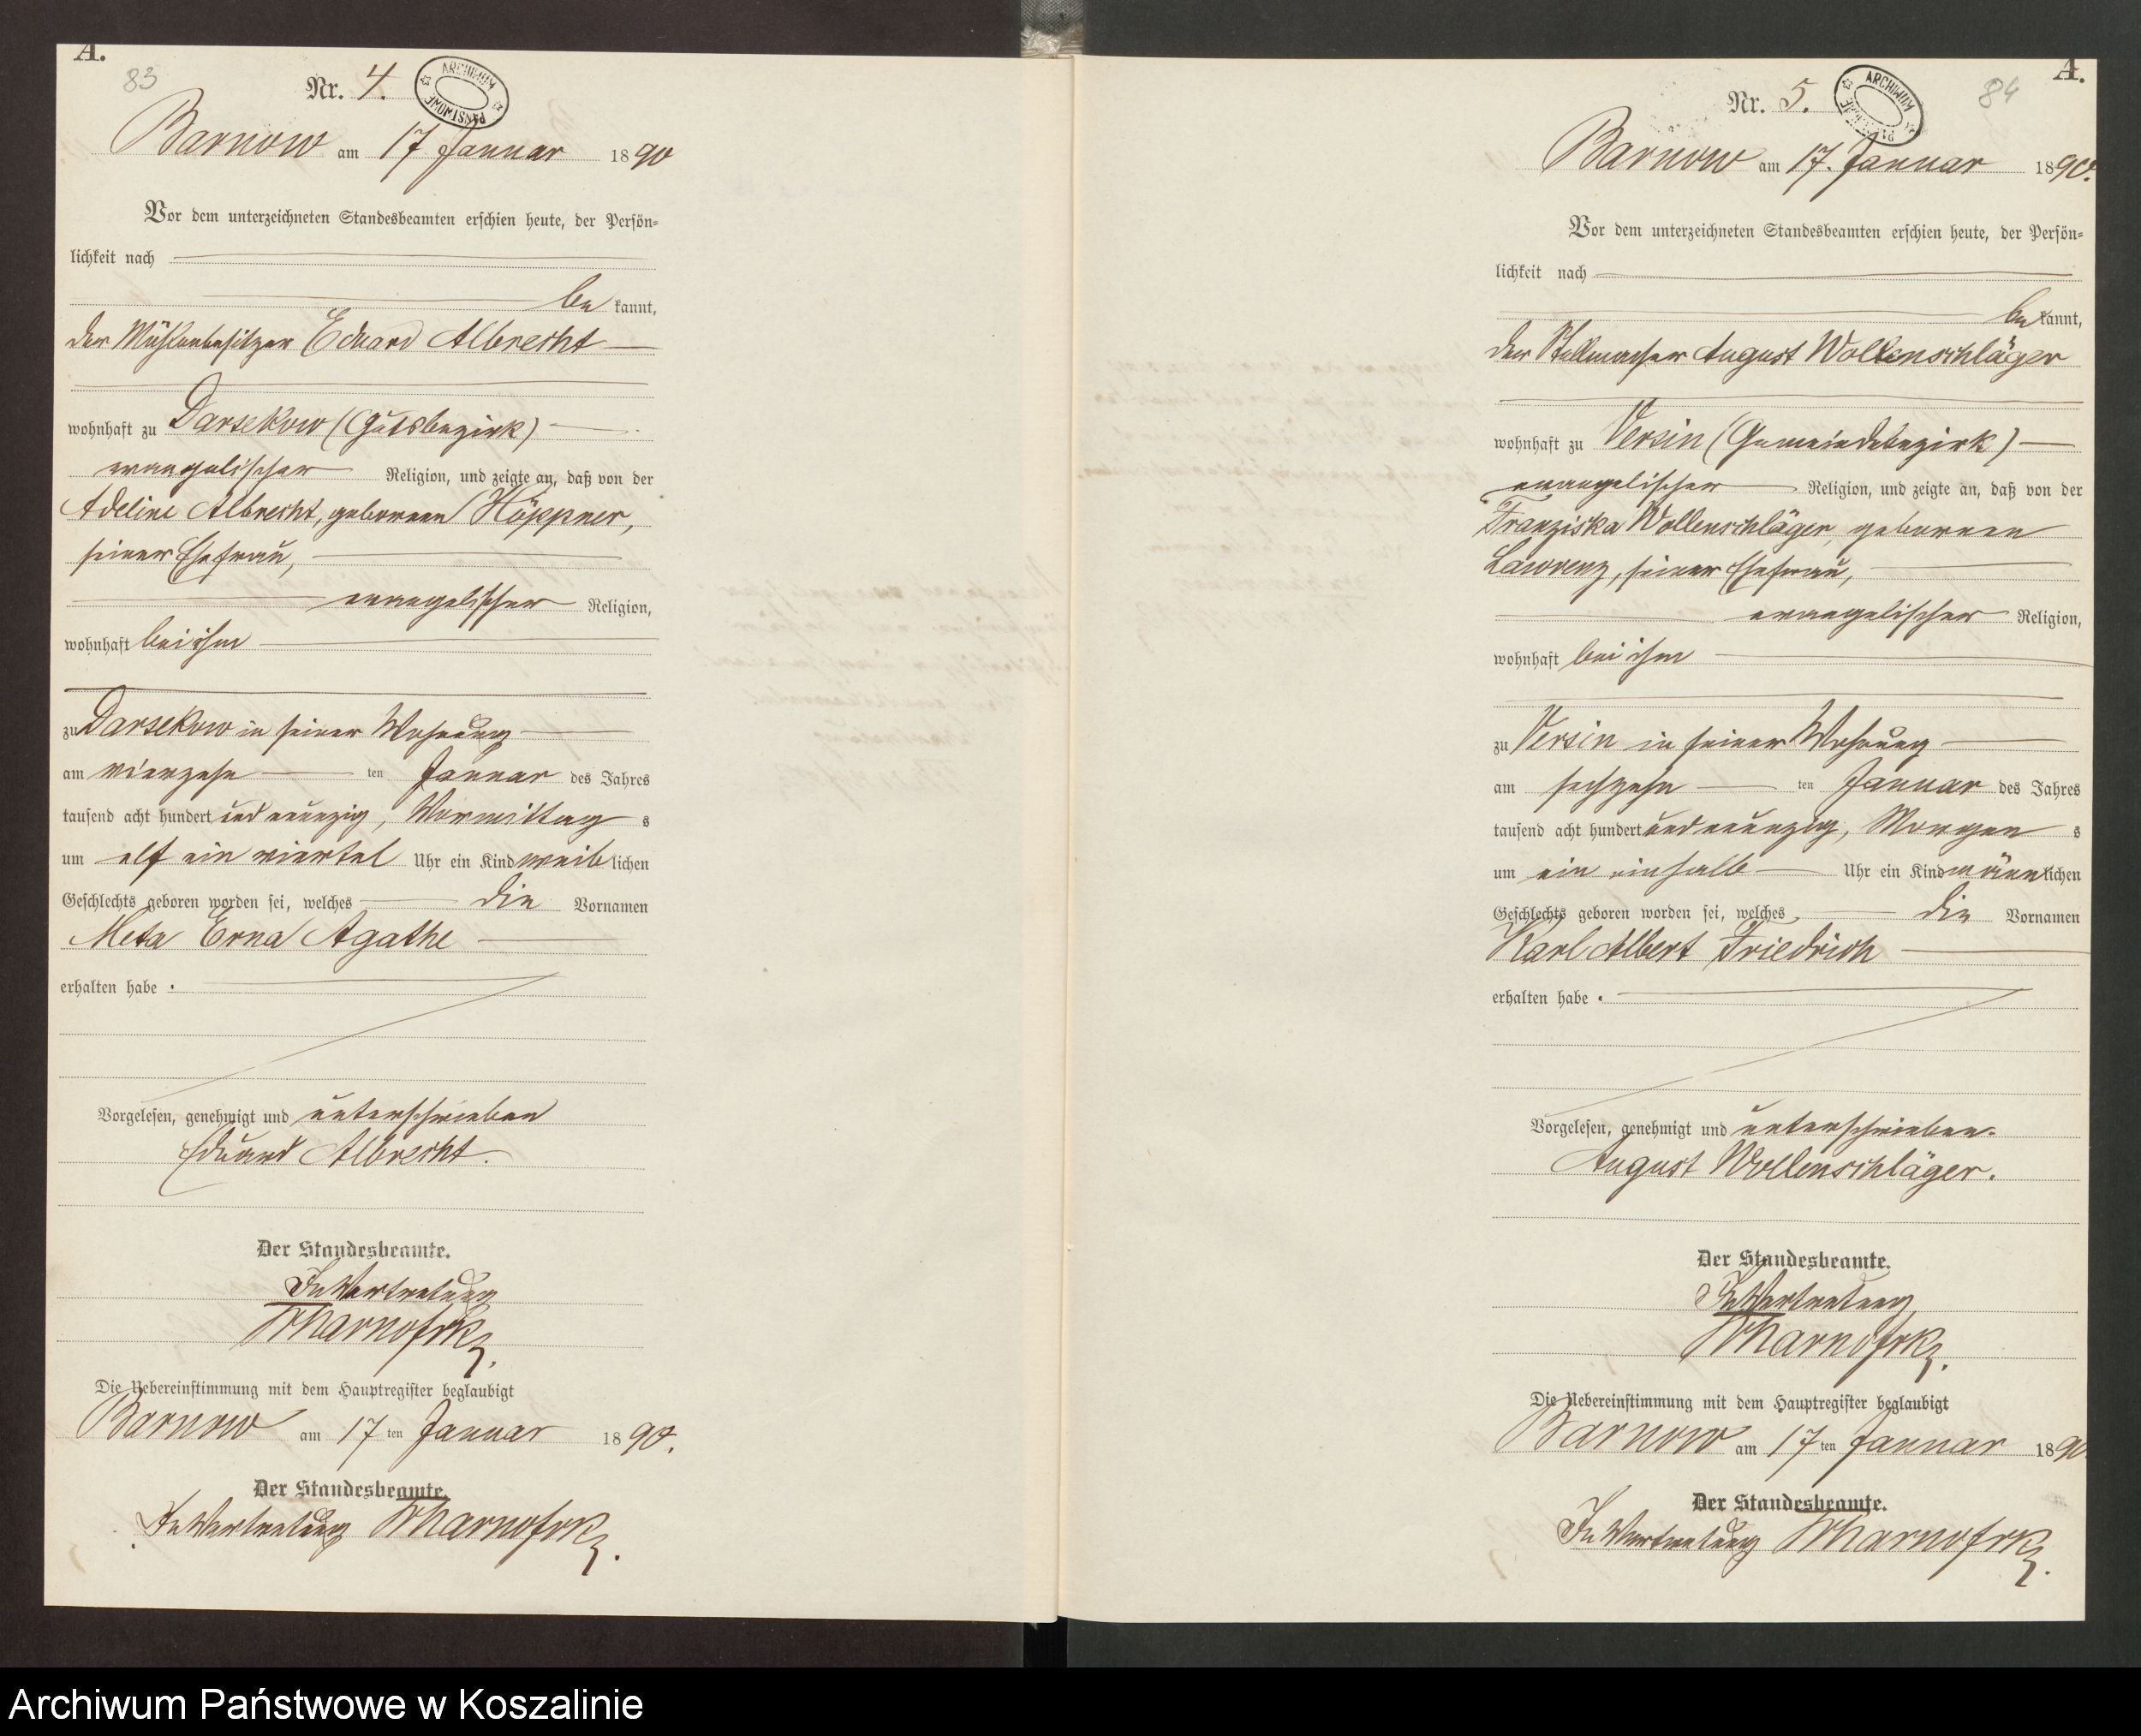 A.
83
Nr. 4.
ARCHIWUM PAŃSTWOWE
Barnow am 17 Januar 1890
Vor dem unterzeichneten Standesbeamten erschien heute, der Persön-
lichkeit nach
be kannt,
der Mühlenbesitzer Eduard Albrecht
wohnhaft zu Darsekow (Gutsbezirk)
evangelischer Religion, und zeigte an, daß von der
Adeline Albrecht, geborenen Höppner,
seiner Ehefrau,
evangelischer Religion,
wohnhaft bei ihm
zu Darsekow in seiner Wohnung
am vierzehn ten Januar des Jahres
tausend acht hundert und neunzig, Vormittag s
um elf ein viertel Uhr ein Kind weib lichen
Geschlechts geboren worden sei, welches die Vornamen
Meta Erna Agathe
erhalten habe .
Vorgelesen, genehmigt und unterschrieben
Eduard Albrecht.
Der Standesbeamte.
In Vertretung
Die Uebereinstimmung mit dem Hauptregister beglaubigt
Barnow am 17 ten Januar 1890.
Der Standesbeamte.
In Vertretung
A.
84
Nr. 5.
ARCHIWUM
Barnow am 17. Januar 1890.
Vor dem unterzeichneten Standesbeamten erschien heute, der Persön-
lichkeit nach
be kannt,
der Stellmacher August Wollenschläger
wohnhaft zu Versin (Gemeindebezirk)
evangelischer Religion, und zeigte an, daß von der
Franziska Wollenschläger, geborenen
Lawrenz, seiner Ehefrau,
evangelischer Religion,
wohnhaft bei ihm
zu Versin in seiner Wohnung
am sechzehn ten Januar des Jahres
tausend acht hundert und neunzig, Morgen s
um ein einhalb Uhr ein Kind männ lichen
Geschlechts geboren worden sei, welches die Vornamen
Karl Albert Friedrich
erhalten habe .
Vorgelesen, genehmigt und unterschrieben.
August Wollenschläger.
Der Standesbeamte.
In Vertretung
Die Uebereinstimmung mit dem Hauptregister beglaubigt
Barnow am 17 ten Januar 1890
Der Standesbeamte.
In Vertretung
Archiwum Państwowe w Koszalinie